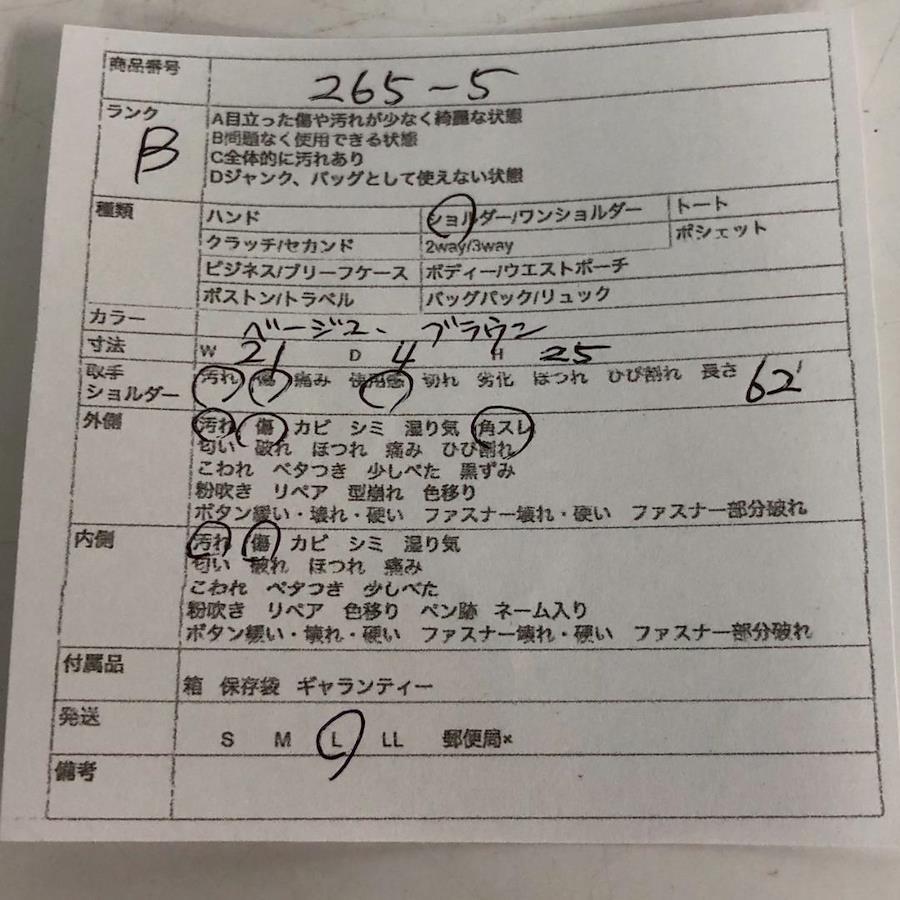 商品番号 265-5
ランク B
A目立った傷や汚れが少なく綺麗な状態
B問題なく使用できる状態
C全体的に汚れあり
Dジャンク、バッグとして使えない状態
種類 ハンド ショルダー/ワンショルダー トート
クラッチ/セカンド 2way/3way ポシェット
ビジネス/ブリーフケース ボディー/ウエストポーチ
ボストン/トラベル バッグパック/リュック
カラー ベージュ、ブラウン
寸法 W 21 D 4 H 25
取手 汚れ 傷 痛み 使用感 切れ 劣化 ほつれ ひび割れ 長さ 62
ショルダー
外側 汚れ 傷 カビ シミ 湿り気 角スレ
匂い 破れ ほつれ 痛み ひび割れ
こわれ ベタつき 少しべた 黒ずみ
粉吹き リペア 型崩れ 色移り
ボタン緩い・壊れ・硬い ファスナー壊れ・硬い ファスナー部分破れ
内側 汚れ 傷 カビ シミ 湿り気
匂い 破れ ほつれ 痛み
こわれ ベタつき 少しべた
粉吹き リペア 色移り ペン跡 ネーム入り
ボタン緩い・壊れ・硬い ファスナー壊れ・硬い ファスナー部分破れ
付属品
箱 保存袋 ギャランティー
発送
S M L LL 郵便局×
備考